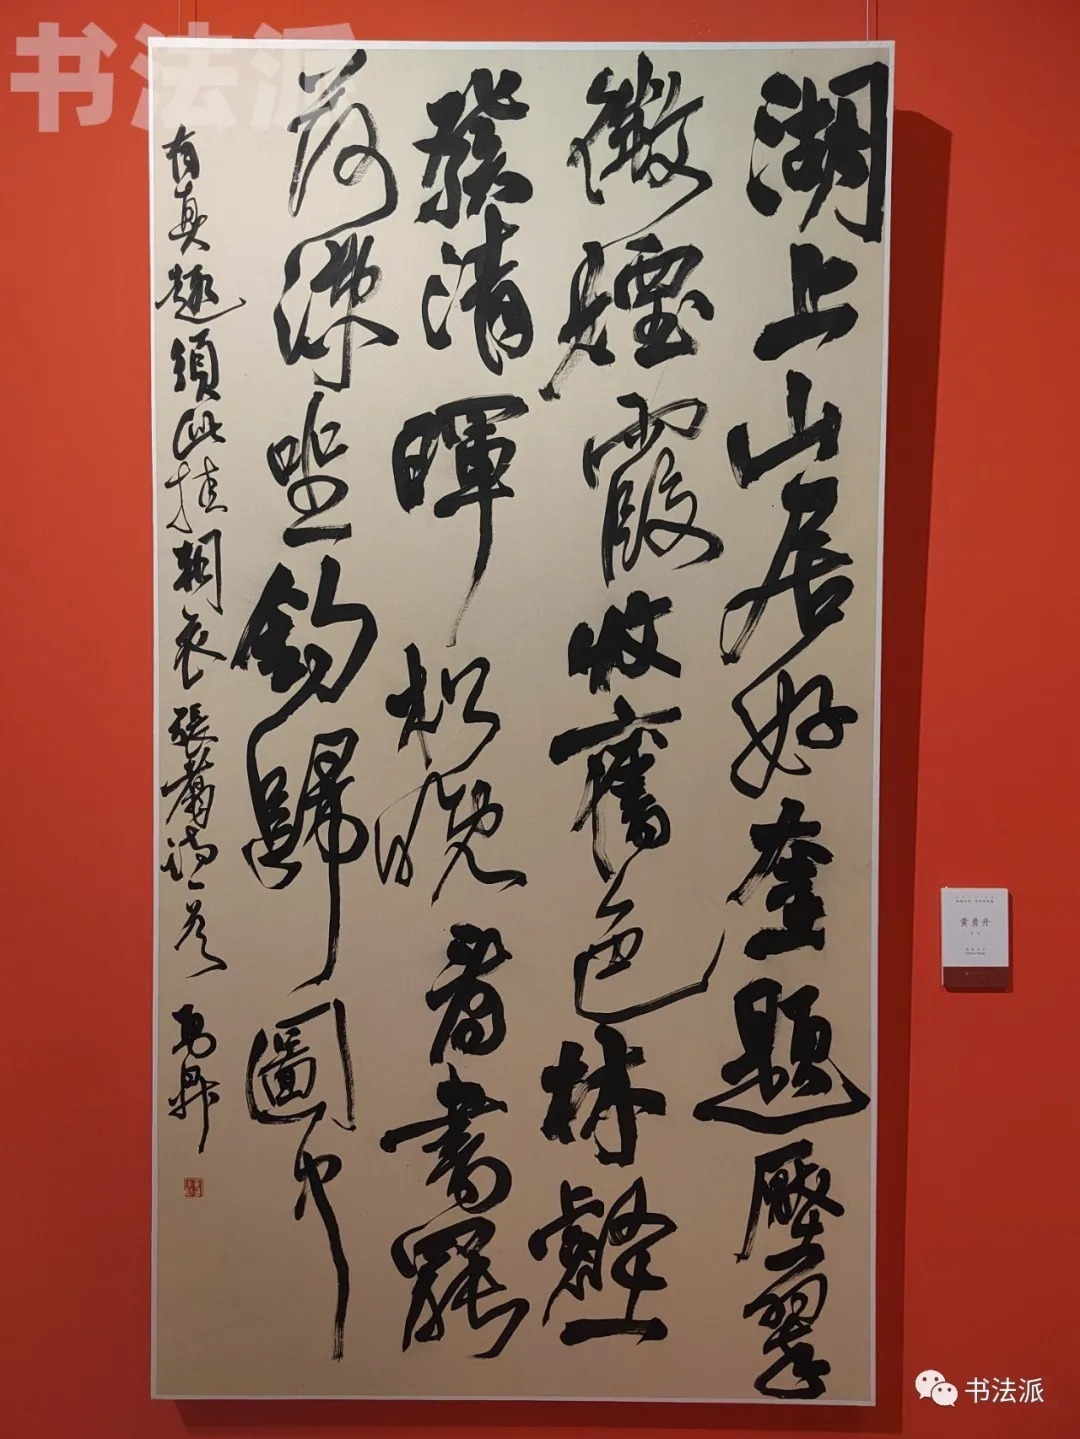 书法派
湖上山居好奎題壓翠
微煙霞收舊色林壑
發清暉松晚看書罷
荷深坐釣歸圖中
有真趣須此挂朝衣 張翥詩一首 勇升
黄勇升
书法派